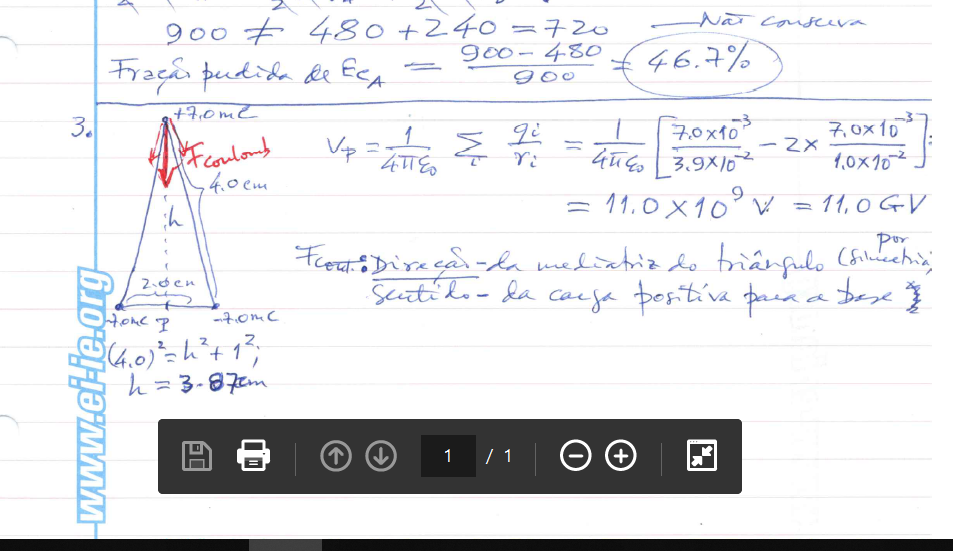 900 ≠ 480 + 240 = 720 — Não conserva
Fração perdida de EcA = 900 - 480 / 900 = 46.7%
3.
+7,0mC
Fcoulomb
4.0cm
h
2.0cm
-7.0mC P -7.0mC
(4,0)² = h² + 1²;
h = 3.87cm
Vp = 1/4πε₀ Σi qi/ri = 1/4πε₀ [7.0×10⁻³/3.9×10⁻² - 2× 7,0×10⁻³/1.0×10⁻²] =
= 11.0×10⁹ V = 11.0 GV
Fcoul.: Direção - da mediatriz do triângulo (por simetria)
Sentido - da carga positiva para a base
www.ei-ie.org
1 / 1